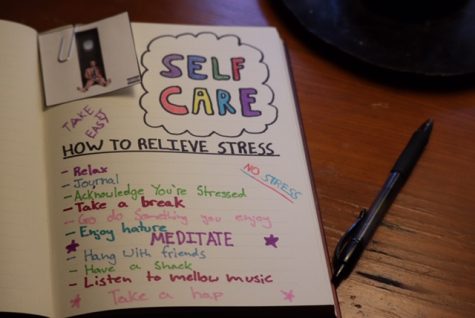 SELF
CARE
TAKE IT
EASY
HOW TO RELIEVE STRESS
- Relax
NO STRESS
- Journal
- Acknowledge You're Stressed
- Take a break
- Go do something you enjoy
- Enjoy nature
MEDITATE
- Hang with friends
- Have a snack
- Listen to mellow music
Take a nap